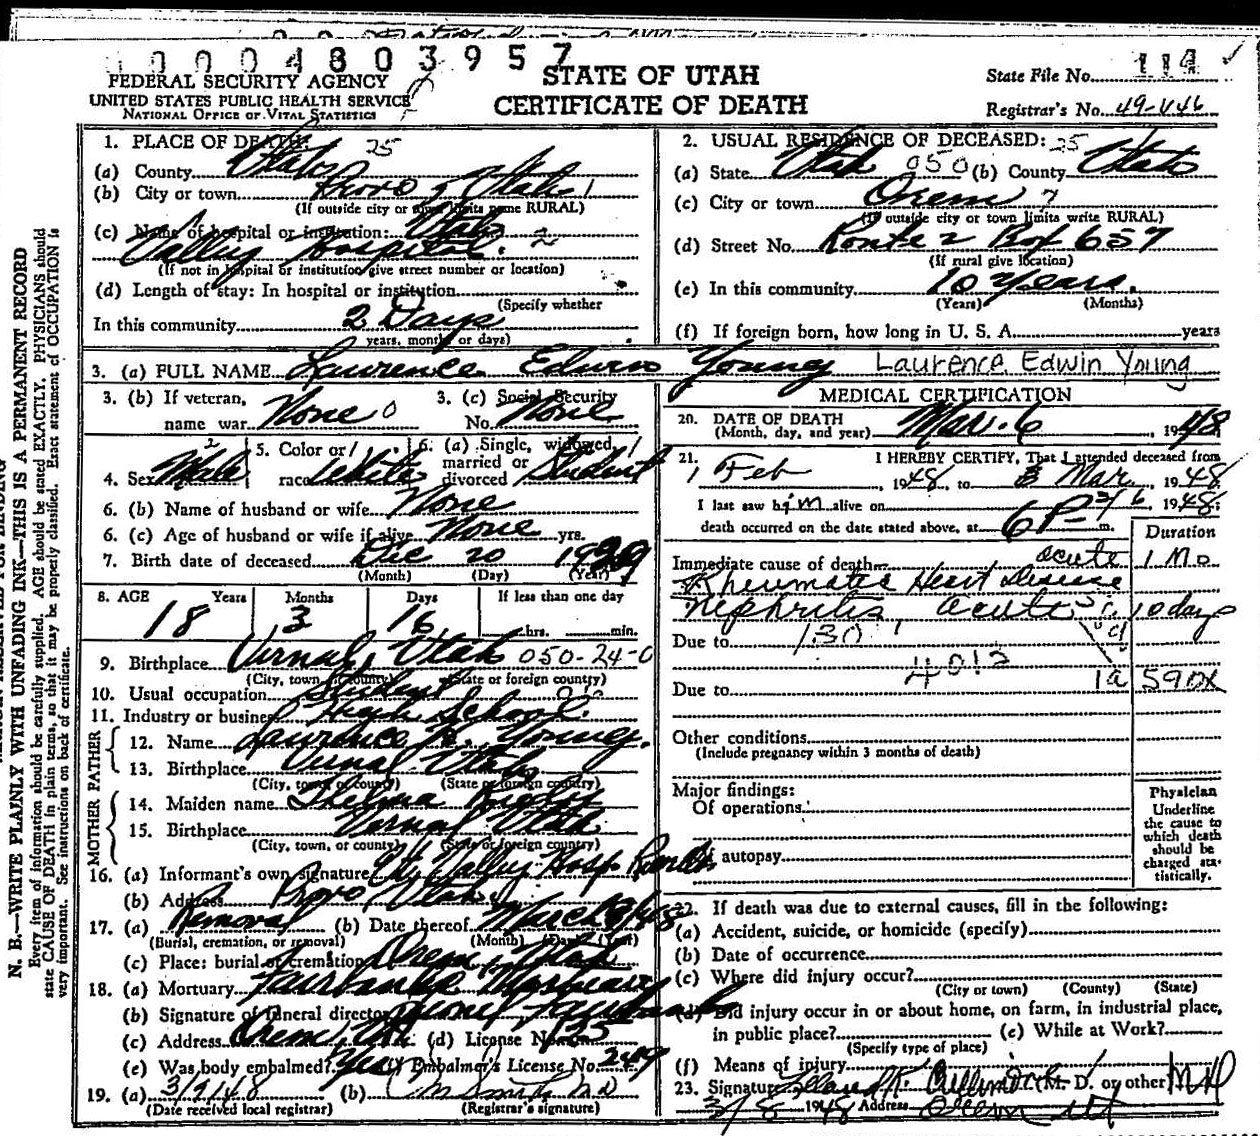 0 0 0 4 8 0 3 9 5 7
FEDERAL SECURITY AGENCY
UNITED STATES PUBLIC HEALTH SERVICE
NATIONAL OFFICE OF VITAL STATISTICS
STATE OF UTAH
CERTIFICATE OF DEATH
State File No. 114
Registrar's No. 49-V46
N. B.—WRITE PLAINLY WITH UNFADING INK—THIS IS A PERMANENT RECORD
Every item of information should be carefully supplied. AGE should be stated EXACTLY. PHYSICIANS should
state CAUSE OF DEATH in plain terms, so that it may be properly classified. Exact statement of OCCUPATION is
very important. See instructions on back of certificate.
1. PLACE OF DEATH: 25
(a) County Utah
(b) City or town Provo Utah 1
(If outside city or town limits name RURAL)
(c) Name of hospital or institution: Utah
Valley Hospital. 2
(If not in hospital or institution give street number or location)
(d) Length of stay: In hospital or institution
(Specify whether
In this community 2 Days
years, months or days)
2. USUAL RESIDENCE OF DECEASED: 25
(a) State Utah 050 (b) County Utah
(c) City or town Orem 7
(If outside city or town limits write RURAL)
(d) Street No. Route 2 Box 657
(If rural give location)
(e) In this community 10 Years.
(Years) (Months)
(f) If foreign born, how long in U. S. A. years
3. (a) FULL NAME Lawrence Edwin Young Laurence Edwin Young
3. (b) If veteran,
name war None 0
3. (c) Social Security
No. None
4. Sex Male 2
5. Color or
race White
6. (a) Single, widowed, 1
married or
divorced Student
6. (b) Name of husband or wife None
6. (c) Age of husband or wife if alive None yrs.
7. Birth date of deceased Dec 20 1929
(Month) (Day) (Year)
8. AGE Years Months Days If less than one day
18 3 16 hrs. min.
9. Birthplace Vernal, Utah 050-24-0
(City, town or county) (State or foreign country)
10. Usual occupation Student
11. Industry or business High School.
FATHER
12. Name Lawrence Young.
13. Birthplace Vernal Utah
(City, town or county) (State or foreign country)
MOTHER
14. Maiden name Thelma
15. Birthplace Vernal Utah
(City, town, or county) (State or foreign country)
16. (a) Informant's own signature Ut. Valley Hosp
(b) Address Provo, Utah.
17. (a) Removal (b) Date thereof March 48
(Burial, cremation, or removal) (Month) (Day) (Year)
(c) Place: burial or cremation Orem, Utah
18. (a) Mortuary Fairbanks Mortuary
(b) Signature of funeral director Fairbanks
(c) Address Orem, Ut. (d) License No. 135
(e) Was body embalmed? Yes (f) Embalmer's License No. 249
19. (a) 3/9/48 (b)
(Date received local registrar) (Registrar's signature)
MEDICAL CERTIFICATION
20. DATE OF DEATH
(Month, day, and year) Mar. 6, 1948
21. I HEREBY CERTIFY, That I attended deceased from
1 Feb, 1948, to Mar, 1948
I last saw him alive on 3/6, 1948;
death occurred on the date stated above, at 6 P m.
Duration
Immediate cause of death acute 1 Mo.
Rheumatic Heart Disease
Nephritis acute 10 days
Due to 130
401.2
Due to 1a 590X
Other conditions
(Include pregnancy within 3 months of death)
Major findings:
Of operations
Of autopsy
Physician
Underline
the cause to
which death
should be
charged sta-
tistically.
22. If death was due to external causes, fill in the following:
(a) Accident, suicide, or homicide (specify)
(b) Date of occurrence
(c) Where did injury occur?
(City or town) (County) (State)
(d) Did injury occur in or about home, on farm, in industrial place,
in public place? (e) While at Work?
(Specify type of place)
(f) Means of injury
23. Signature (M. D. or other) MD
3/8 1948 Address Orem Ut